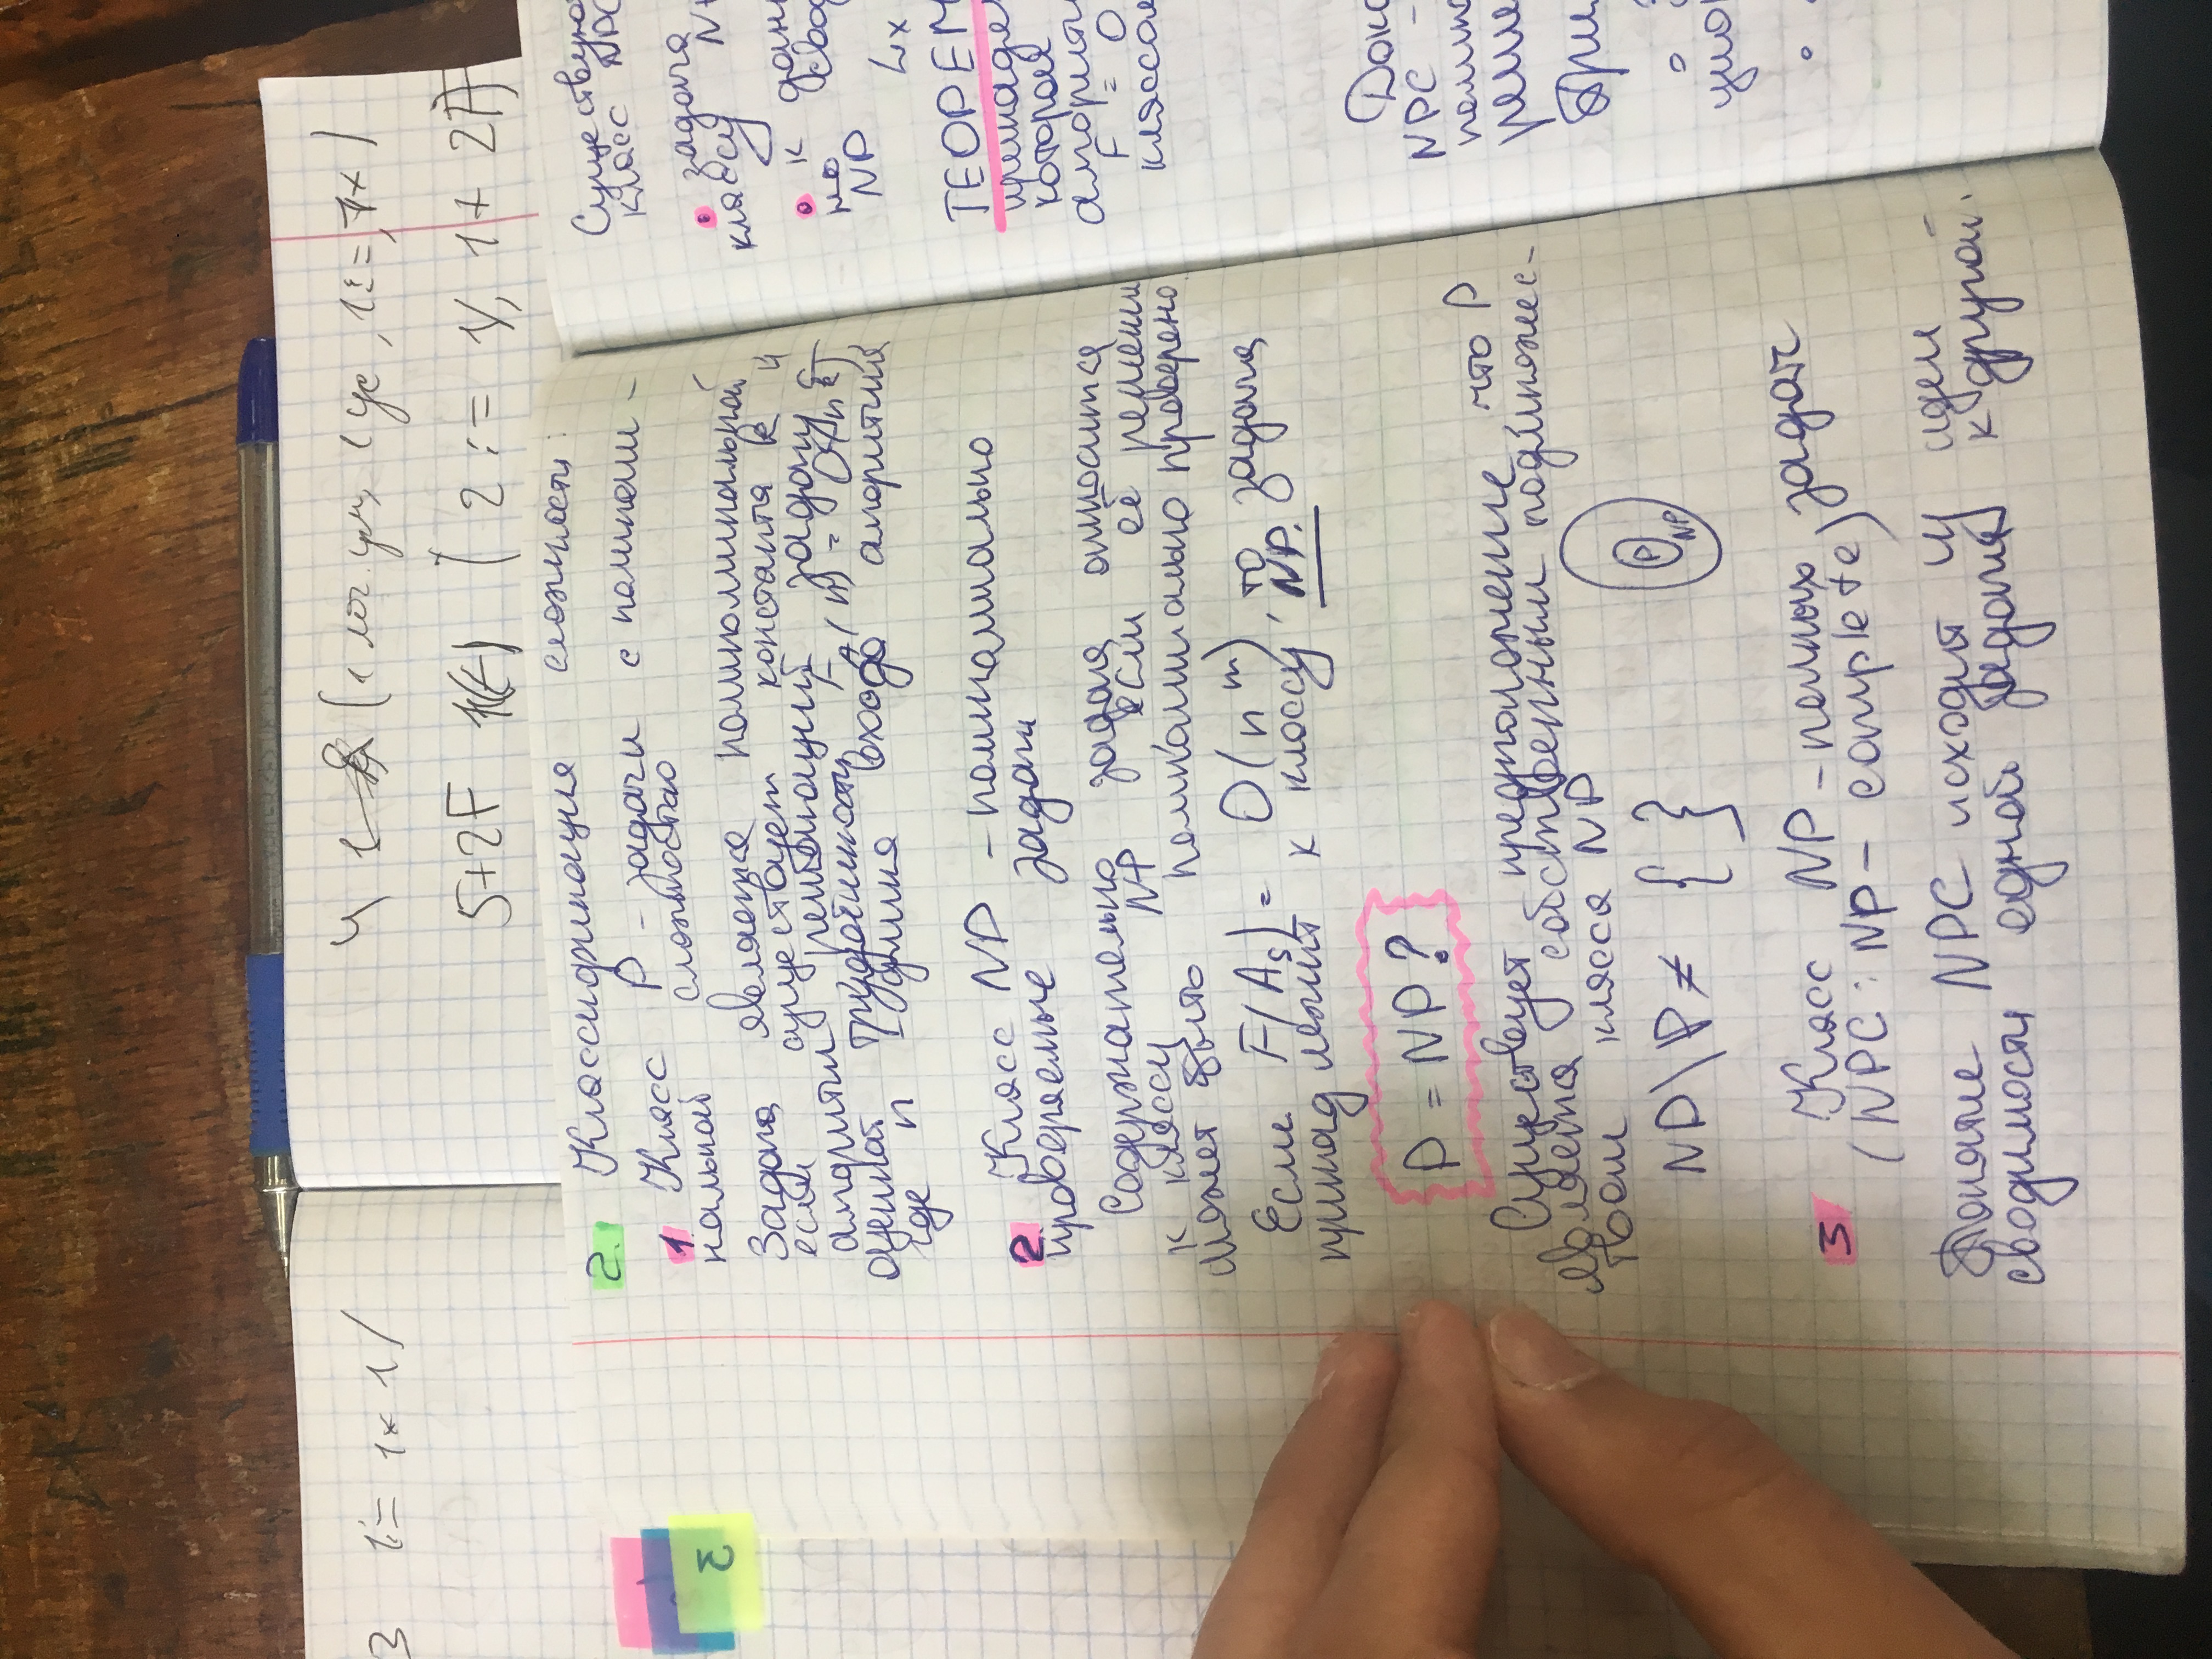 3 1:= 1x 1/
4 1 (1 лог. ум, 1 ус, 1:=, 1x)
5+2F (2 := 1/, 1+ 2F)
2. Классификация сложности:
1. Класс P - задачи с полиноми-
нальной сложностью
Задача является полиноминальной
если существует константа k и
алгоритм, решающий задачу с
оценкой трудоёмкости F_A(n) = O(n^k),
где n - длина входа алгоритма
2. Класс NP - полиномиально
проверяемые задачи
Содержательно задача относится
к классу NP если её решение
может быть полиномиально проверено
Если F(A_s) = O(n^m), то задача
принадлежит к классу NP.
P = NP?
Существует предположение, что P
является собственным подмножес-
твом класса NP
NP \ P ≠ { }
P
NP
3 Класс NP - полных задач
(NPC : NP - complete)
Понятие NPC исходит из идеи
сводимости одной задачи к другой.
Существую
класс NPC
• задача
классу NP
• к дан
но свод
NP
Lx
ТЕОРЕМ
принадле
которой
алгорит
F = O
классом
Дока
NPC -
полино
реше
При
3